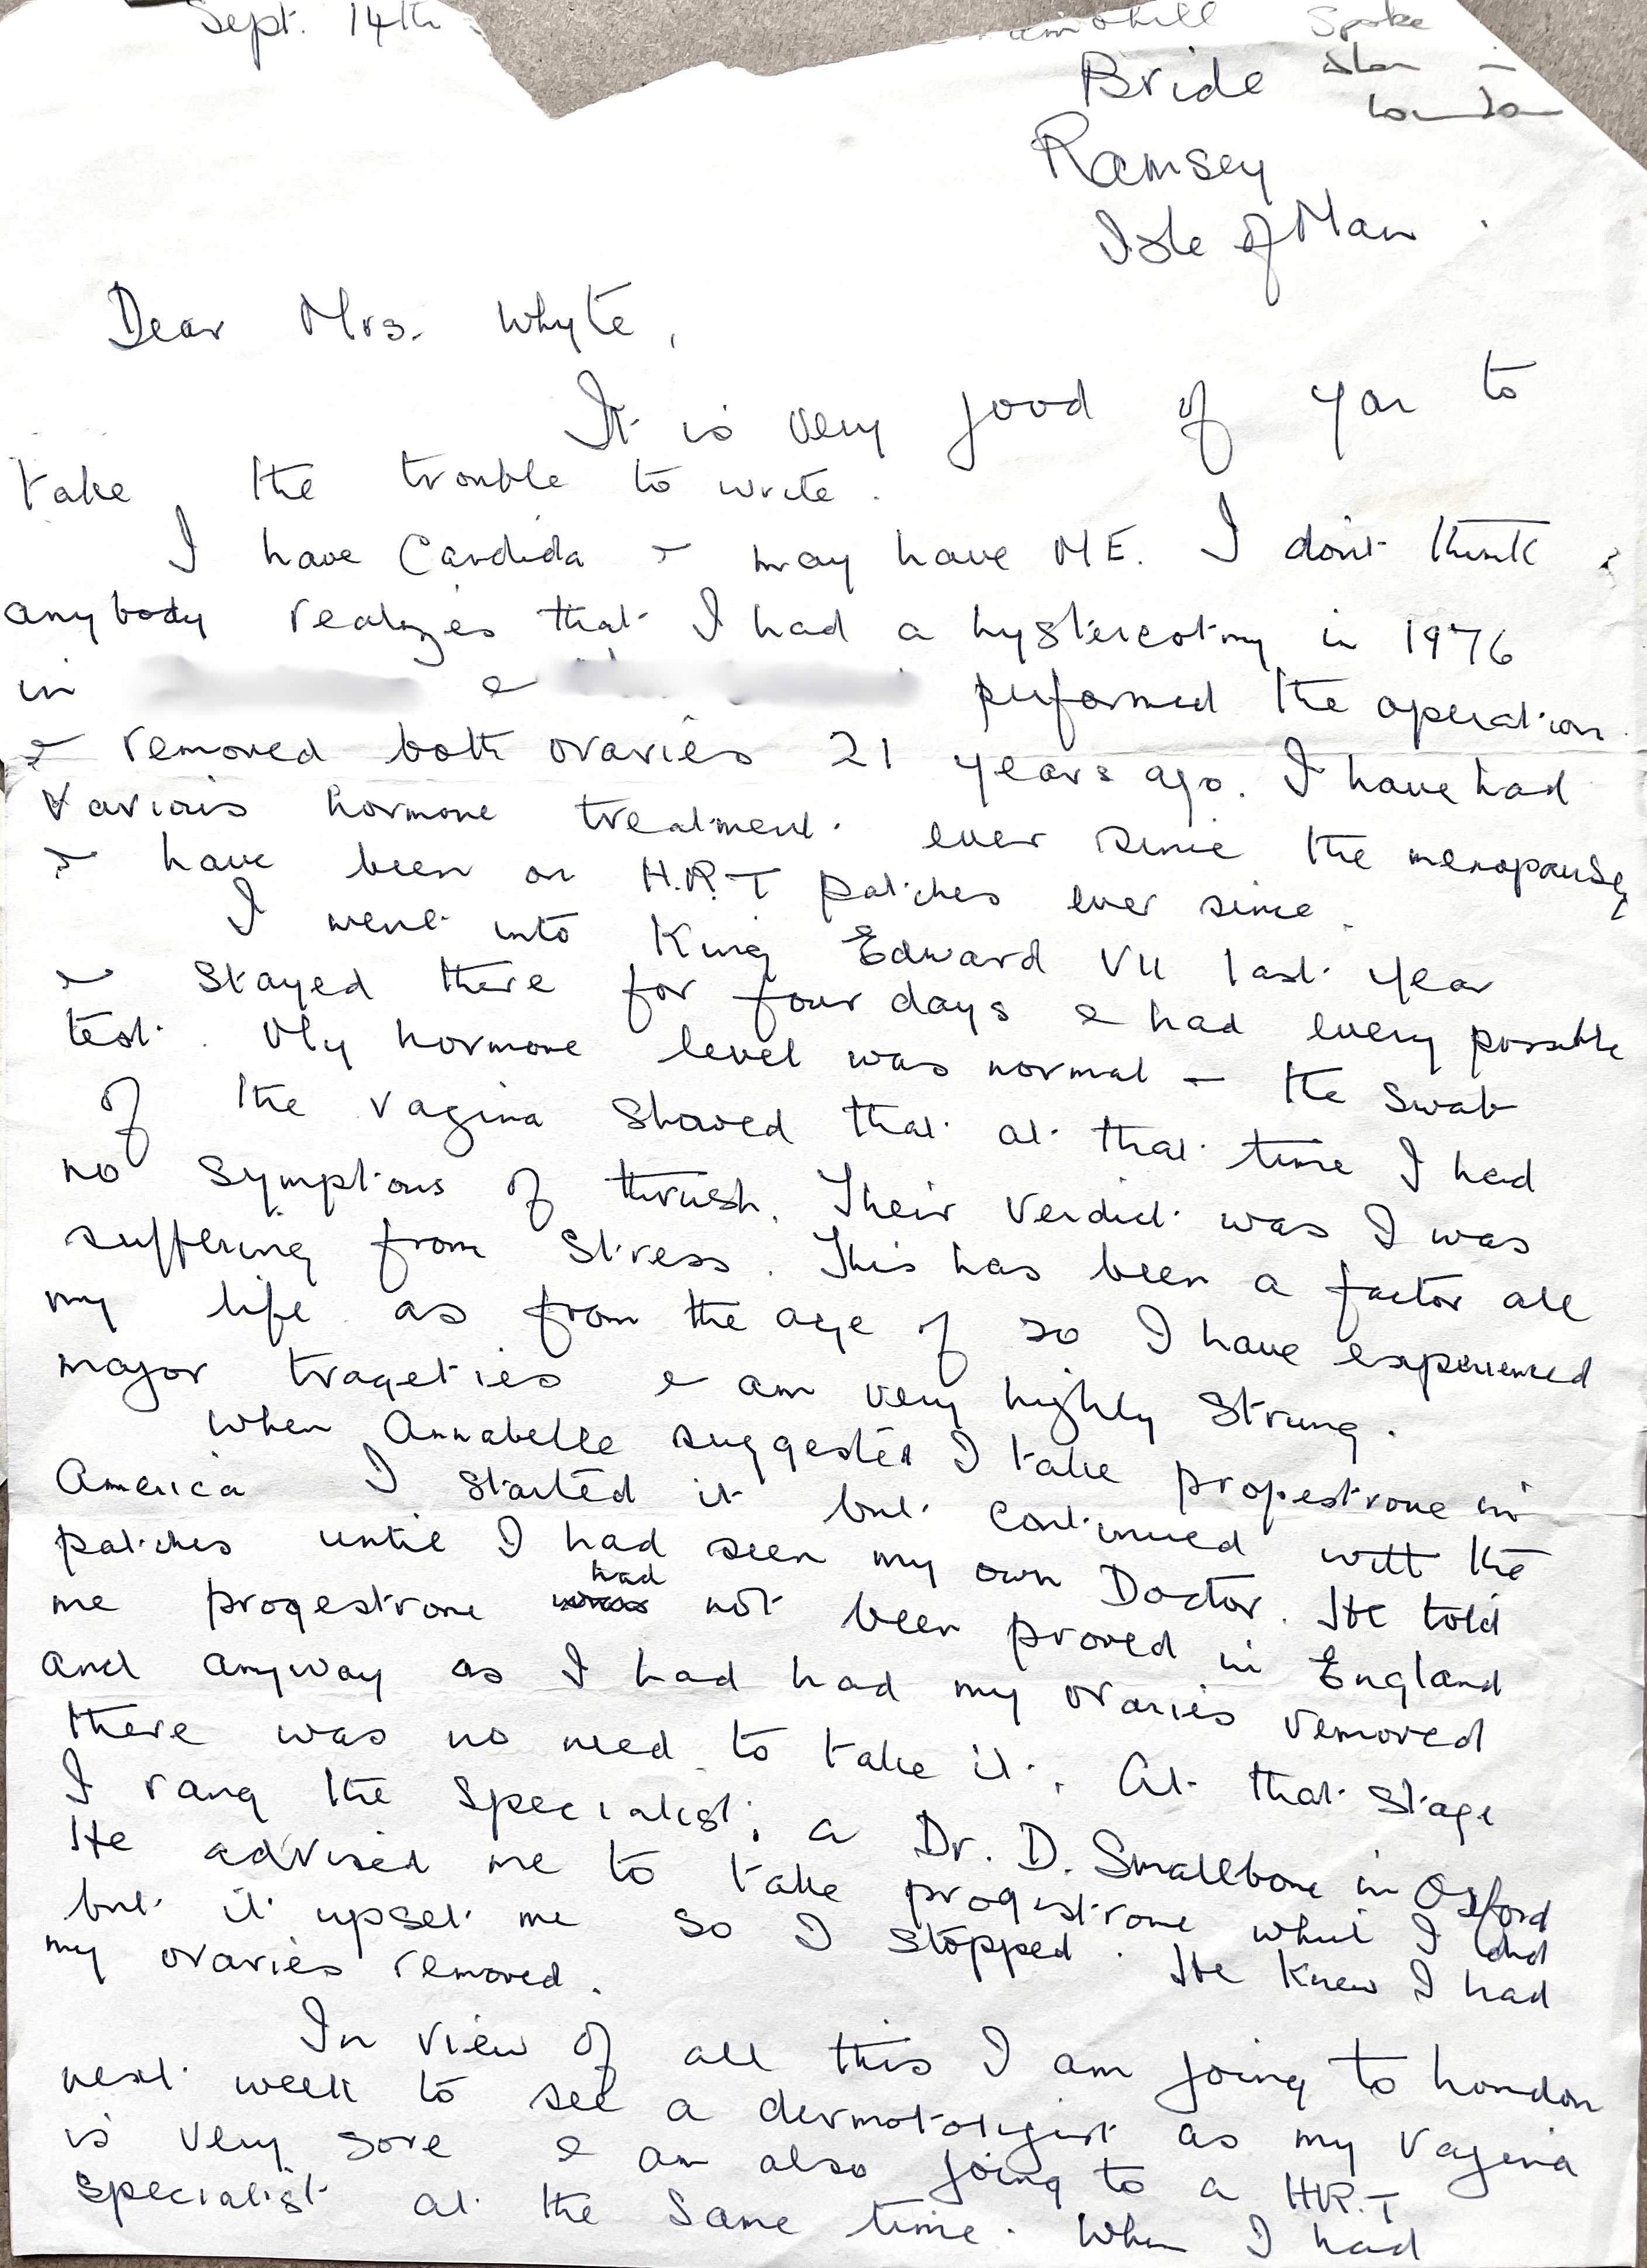 Sept. 14th
Spoke
London
Bride
Ramsey
Isle of Man.
Dear Mrs. Whyte,
It is very good of you to
take the trouble to write.
I have Candida & may have ME. I don't think
anybody realizes that I had a hysterectomy in 1976
in & performed the operation
& removed both ovaries 21 years ago. I have had
various hormone treatment ever since the menopause
& have been on H.R.T patches ever since.
I went into King Edward VII last year
& stayed there for four days & had every possible
test. My hormone level was normal - the swab
of the vagina showed that at that time I had
no symptons of thrush. Their verdict was I was
suffering from stress. This has been a factor all
my life as from the age of 20 I have experienced
major trageties & am very highly strung.
When Annabelle suggested I take progestrone in
America I started it but continued with the
patches until I had seen my own Doctor. He told
me progestrone had not been proved in England
and anyway as I had had my ovaries removed
there was no need to take it. At that stage
I rang the specialist, a Dr. D. Smallbone in Oxford
He advised me to take progestrone which I did
but it upset me so I stopped. He knew I had
my ovaries removed.
In view of all this I am going to London
next week to see a dermotoligist as my vagina
is very sore & am also going to a H.R.T
specialist at the same time. When I had